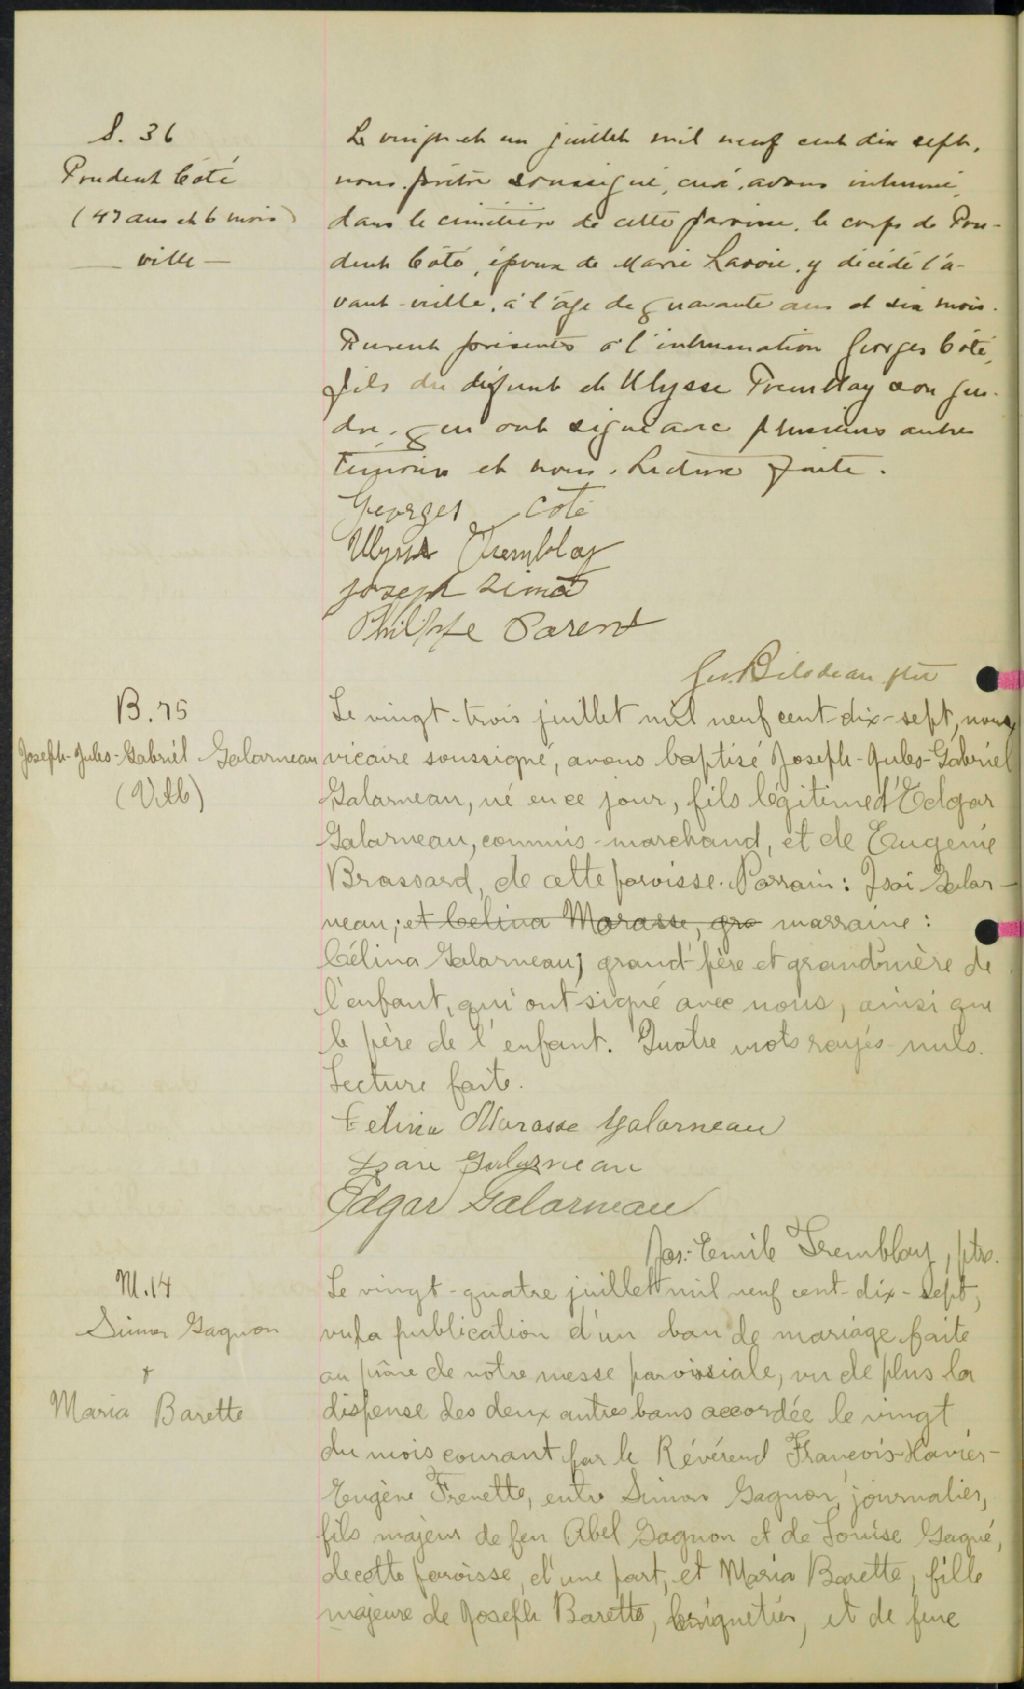 S. 36
Prudent Côté
(47 ans et 6 mois)
ville
Le vingt et un juillet mil neuf cent dix sept,
nous prêtre soussigné, curé, avons inhumé,
dans le cimetière de cette paroisse, le corps de Pru-
dent Côté, époux de Marie Lavoie, y décédé l'a-
vant-veille, à l'âge de quarante ans et six mois.
Furent présents à l'inhumation Georges Côté,
fils du défunt et Ulysse Tremblay son gen-
dre, qui ont signé avec plusieurs autres
témoins et nous. Lecture faite.
Georges Coté
Ulysse Tremblay
Joseph Simard
Philippe Parent
Geo. Bilodeau ptre
B. 75
Joseph-Jules-Gabriel Galarneau
(Ville)
Le vingt-trois juillet mil neuf cent-dix-sept, nous,
vicaire soussigné, avons baptisé Joseph-Jules-Gabriel
Galarneau, né en ce jour, fils légitime d'Edgar
Galarneau, commis-marchand, et de Eugenie
Brassard, de cette paroisse. Parrain: Isaï Galar-
neau; et Celina Marasse, gra marraine:
Célina Galarneau; grand'père et grand'mère de
l'enfant, qui ont signé avec nous, ainsi que
le père de l'enfant. Quatre mots rayés nuls.
Lecture faite.
Celina Marasse Galarneau
Galarneau
Edgar Galarneau
Jos.-Emile Tremblay, ptre.
M. 14
Simon Gagnon
+
Maria Barette
Le vingt-quatre juillet mil neuf cent-dix-sept,
vu la publication d'un ban de mariage faite
au prône de nôtre messe paroissiale, vu de plus la
dispense des deux autres bans accordée le vingt
du mois courant par le Révérend François-Xavier-
Eugène Frenette, entre Simon Gagnon, journalier,
fils majeur de feu Abel Gagnon et de Louise Gagné,
de cette paroisse, d'une part, et Maria Barette, fille
majeure de Joseph Barette, briquetier, et de feue